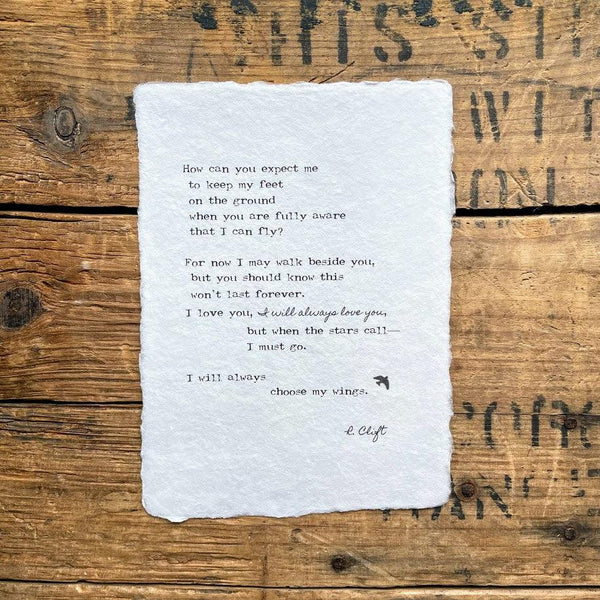 How can you expect me
to keep my feet
on the ground
when you are fully aware
that I can fly?
For now I may walk beside you,
but you should know this
won't last forever.
I love you, I will always love you,
but when the stars call—
I must go.
I will always
choose my wings.
r. Clift